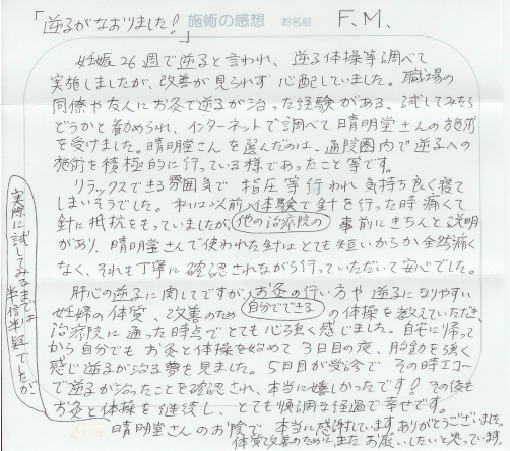 「逆子がなおりました！」 施術の感想 お名前 F.M.
妊娠26週で逆子と言われ、逆子体操等調べて
実施しましたが、改善が見られず心配していました。職場の
同僚や友人にお灸で逆子が治った経験がある、試してみたら
どうかと勧められ、インターネットで調べて晴明堂さんの施術
を受けました。晴明堂さんを選んだのは、通院圏内で逆子への
施術を積極的に行っている様であったこと等です。
リラックスできる雰囲気で指圧等行われ気持ち良く寝て
しまいそうでした。私は以前、体験で針を行った時痛くて
針に抵抗をもっていましたが、他の治療院の 事前にきちんと説明
があり、晴明堂さんで使われた針はとても短いからか全然痛く
なく、それも丁寧に確認されながら行っていただいて安心でした。
肝心の逆子に関してですが、お灸の行い方や逆子になりやすい
妊婦の体質、改善のため 自分でできる の体操を教えていただき、
治療院に通った時点でとても心強く感じました。自宅に帰って
から自分でもお灸と体操を始めて3日目の夜、胎動を強く
感じ逆子が治る夢を見ました。5日目が受診で その時エコー
で逆子が治ったことを確認され、本当に嬉しかったです！その後も
お灸と体操を継続し、とても順調な経過で幸せです。
晴明堂さんのお陰で 本当に感謝しています。ありがとうございました。
体質改善のために、また お願いしたいと思っています。
実際に試してみるまでは
半信半疑でしたが